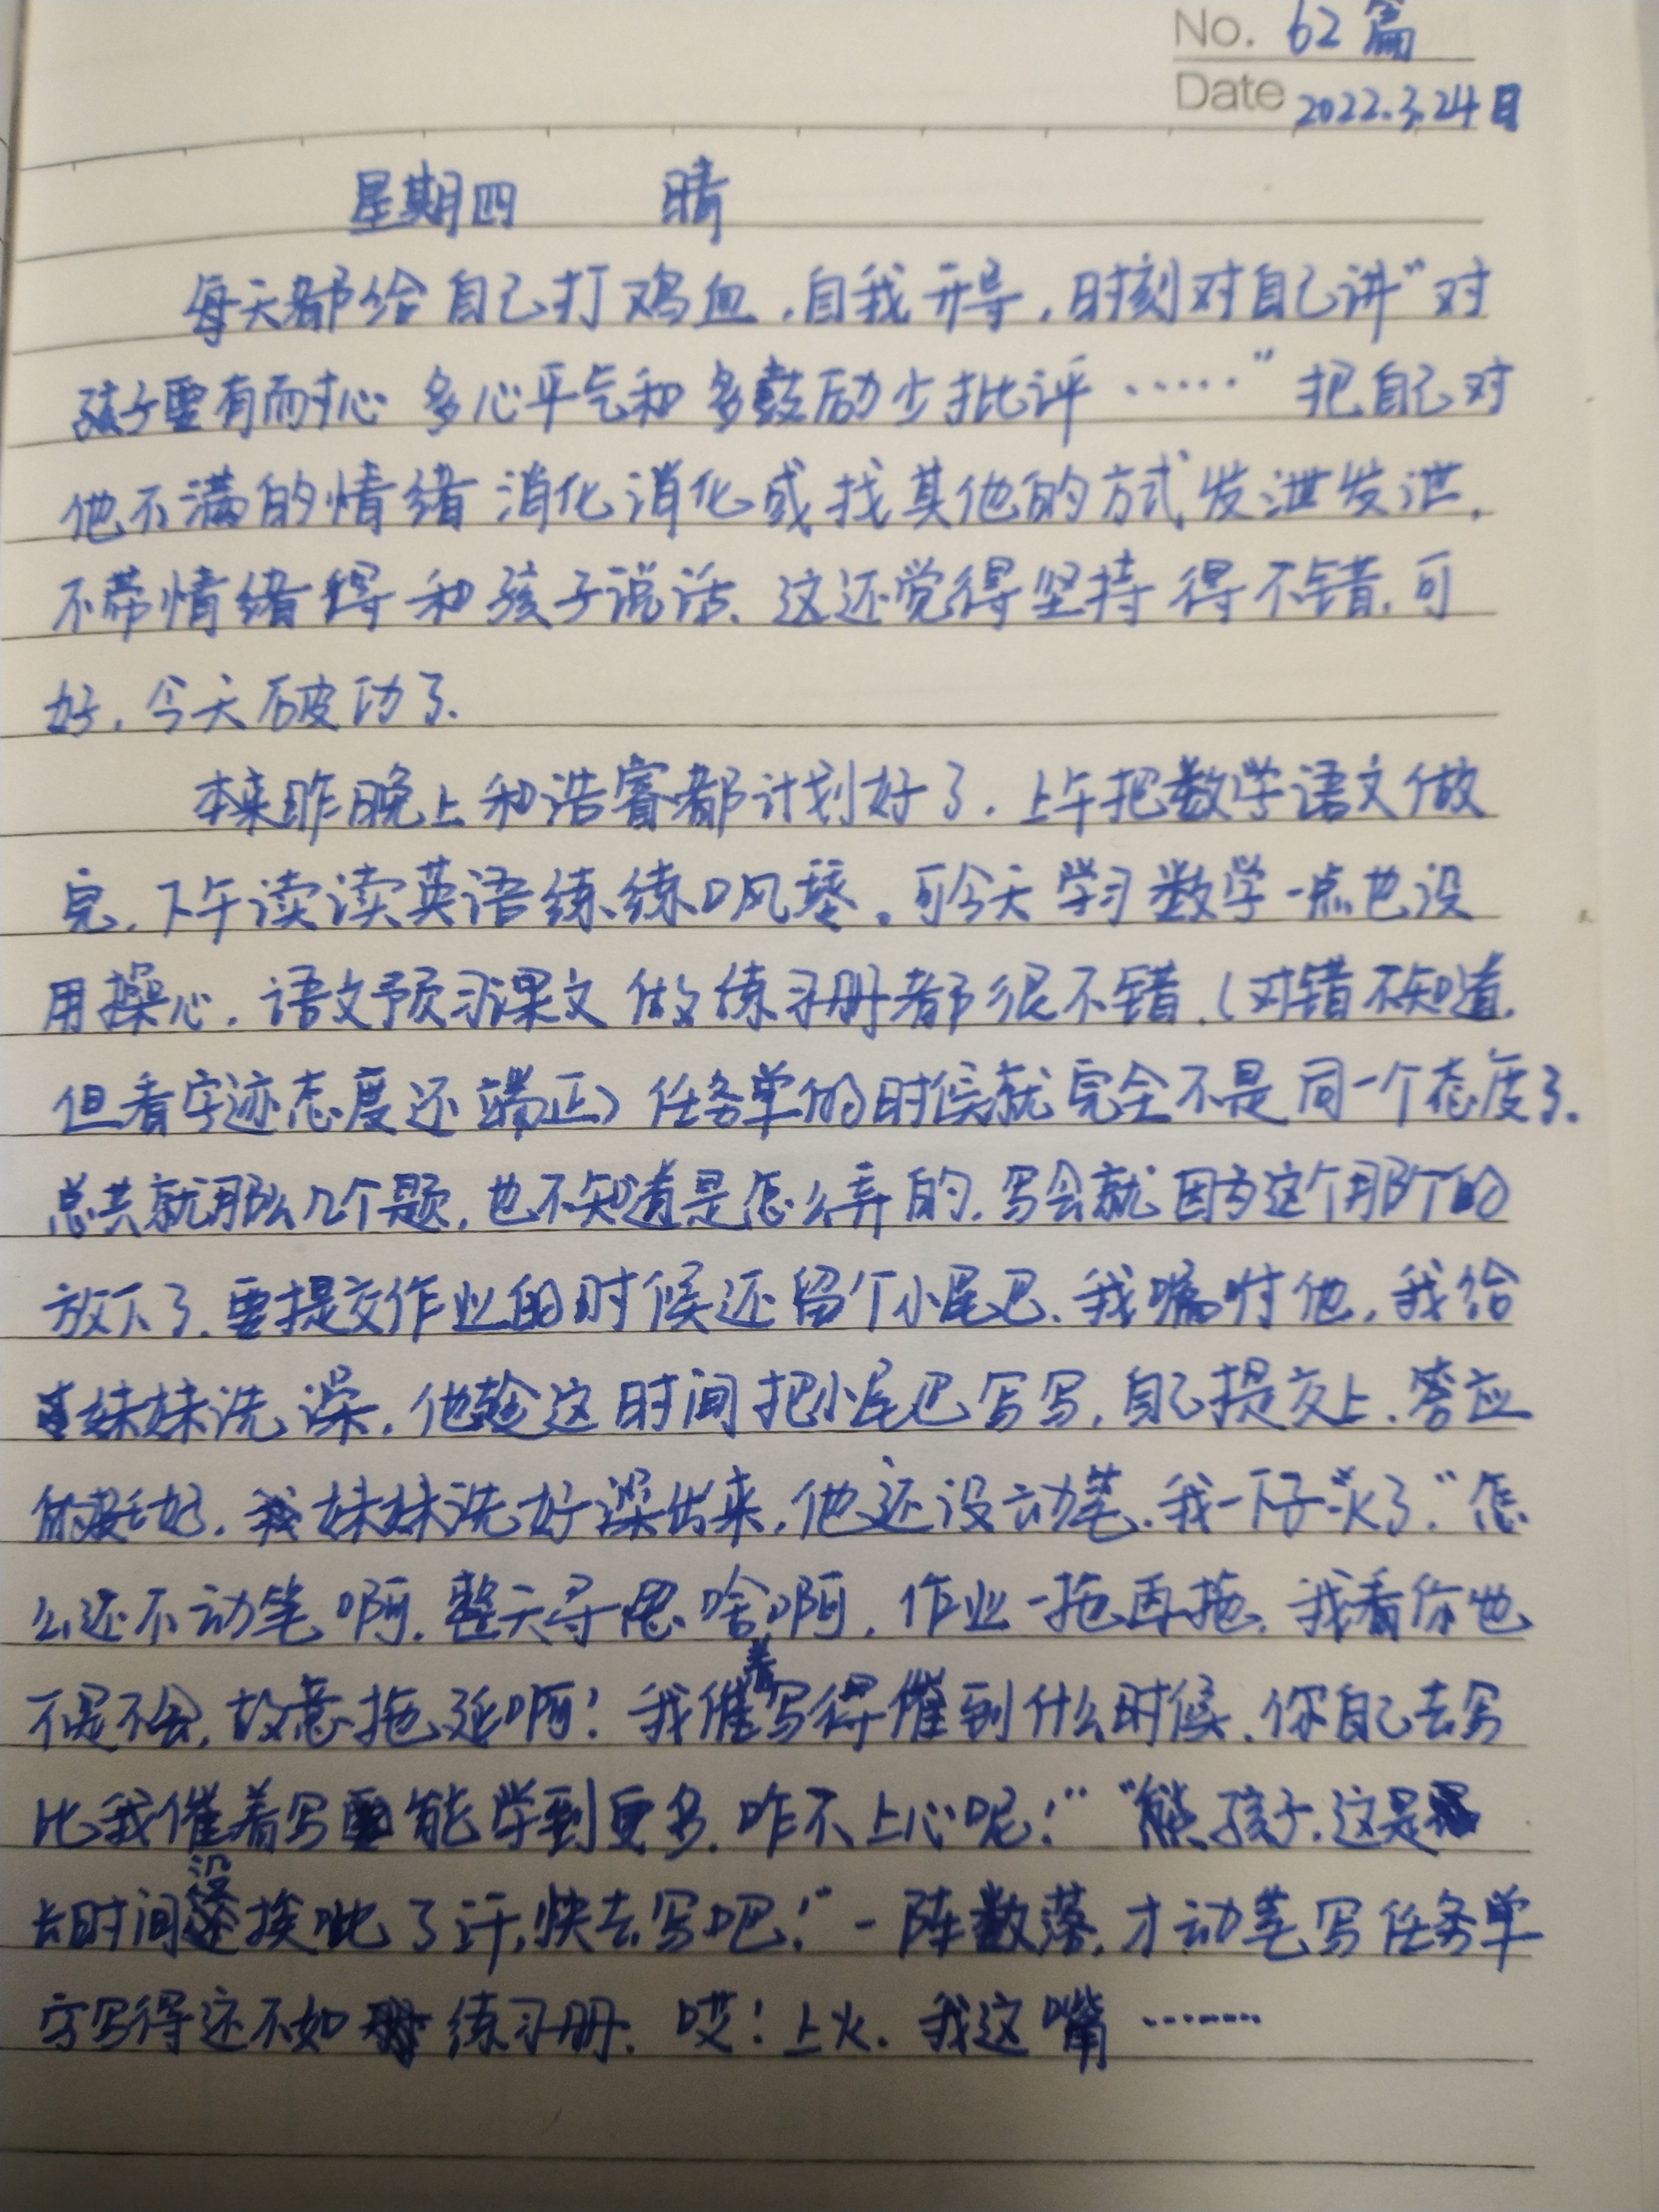 No. 62篇
Date 2022.3.24日
星期四 晴
每天都给自己打鸡血,自我开导,时刻对自己讲“对
孩子要有耐心 多心平气和 多鼓励少批评……”把自己对
他不满的情绪 消化消化或找其他的方式发泄发泄,
不带情绪得和孩子说话.这还觉得坚持得不错.可
好,今天破功了.
本来昨晚上和浩睿都计划好了.上午把数学语文做
完,下午读读英语练练口风琴。可今天学习数学一点也没
用操心.语文预习课文做练习册都很不错.(对错不知道.
但看字迹态度还端正)任务单的时候就完全不是同一个态度了.
总共就那么几个题,也不知道是怎么弄的.写会就因为这个那个的
放下了.要提交作业的时候还留个小尾巴.我嘱咐他,我给
妹妹洗澡,他趁这时间把小尾巴写写,自己提交上.答应
的挺好.妹妹洗好澡出来,他还没动笔.我一下子火了.“怎
么还不动笔啊.整天寻思啥啊,作业一拖再拖.我看你也
不是不会,故意拖延啊!我催着写得催到什么时候.你自己去写
比我催着写能学到更多.咋不上心呢!”“熊孩子,这是
长时间没挨呲了汗,快去写吧!”一阵数落,才动笔写任务单
字写得还不如练习册.哎!上火.我这嘴……